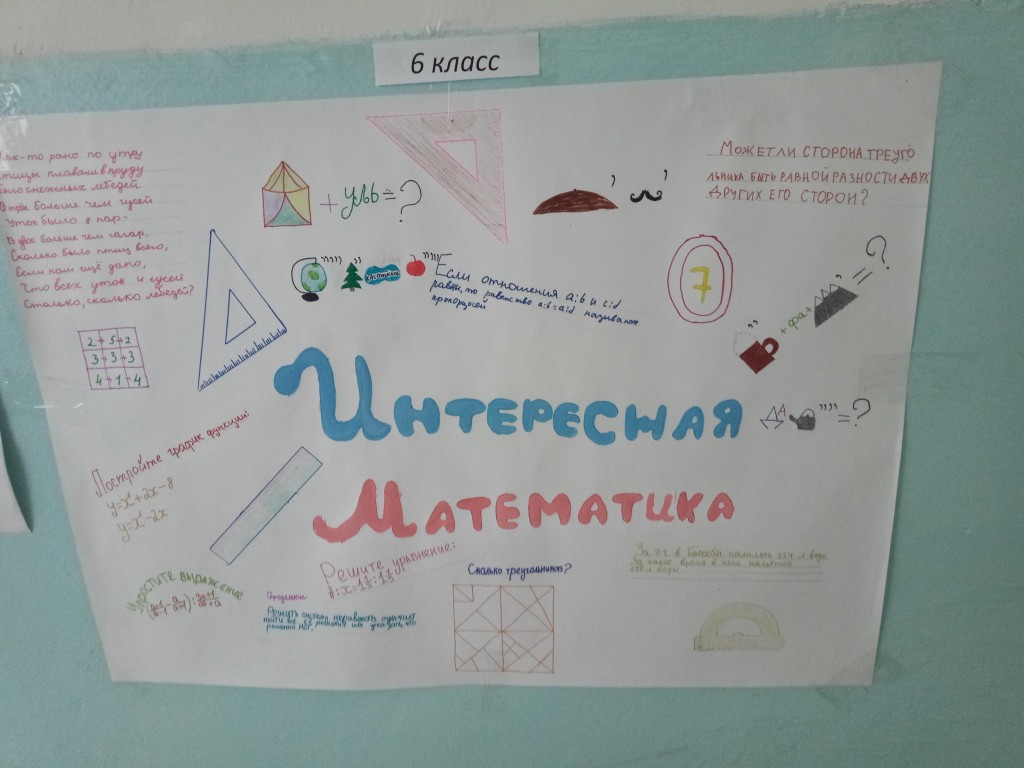 6 класс
Как-то рано по утру
птицы плавали в пруду
снежных лебедей
больше чем гусей
Уток было 8 пар-
больше чем гагар.
Сколько было птиц всего,
Если нам ещё дано,
Что всех уток и гусей
Столько, сколько лебедей?
+ уль = ?
’ ’
МОЖЕТ ЛИ СТОРОНА ТРЕУГО
ЛЬНИКА БЫТЬ РАВНОЙ РАЗНОСТИ ДВУХ
ДРУГИХ ЕГО СТОРОН?
Если отношения a:b и c:d
равны, то равенство a:b=c:d называют
пропорцией
7
+ фа + = ?
2 5 2
3 3 3
4 1 4
ИНТЕРЕСНАЯ
МАТЕМАТИКА
’’’’ = ?
Постройте график функции:
y=x²+2x-8
y=x²-2x
Упростите выражение
Решите уравнение:
Определение
Решить систему неравенств означает
найти все её решения или доказать, что
решений нет.
Сколько треугольников?
За 7 г в бассейн налили 224 л воды
За какое время в нём нальётся
л воды